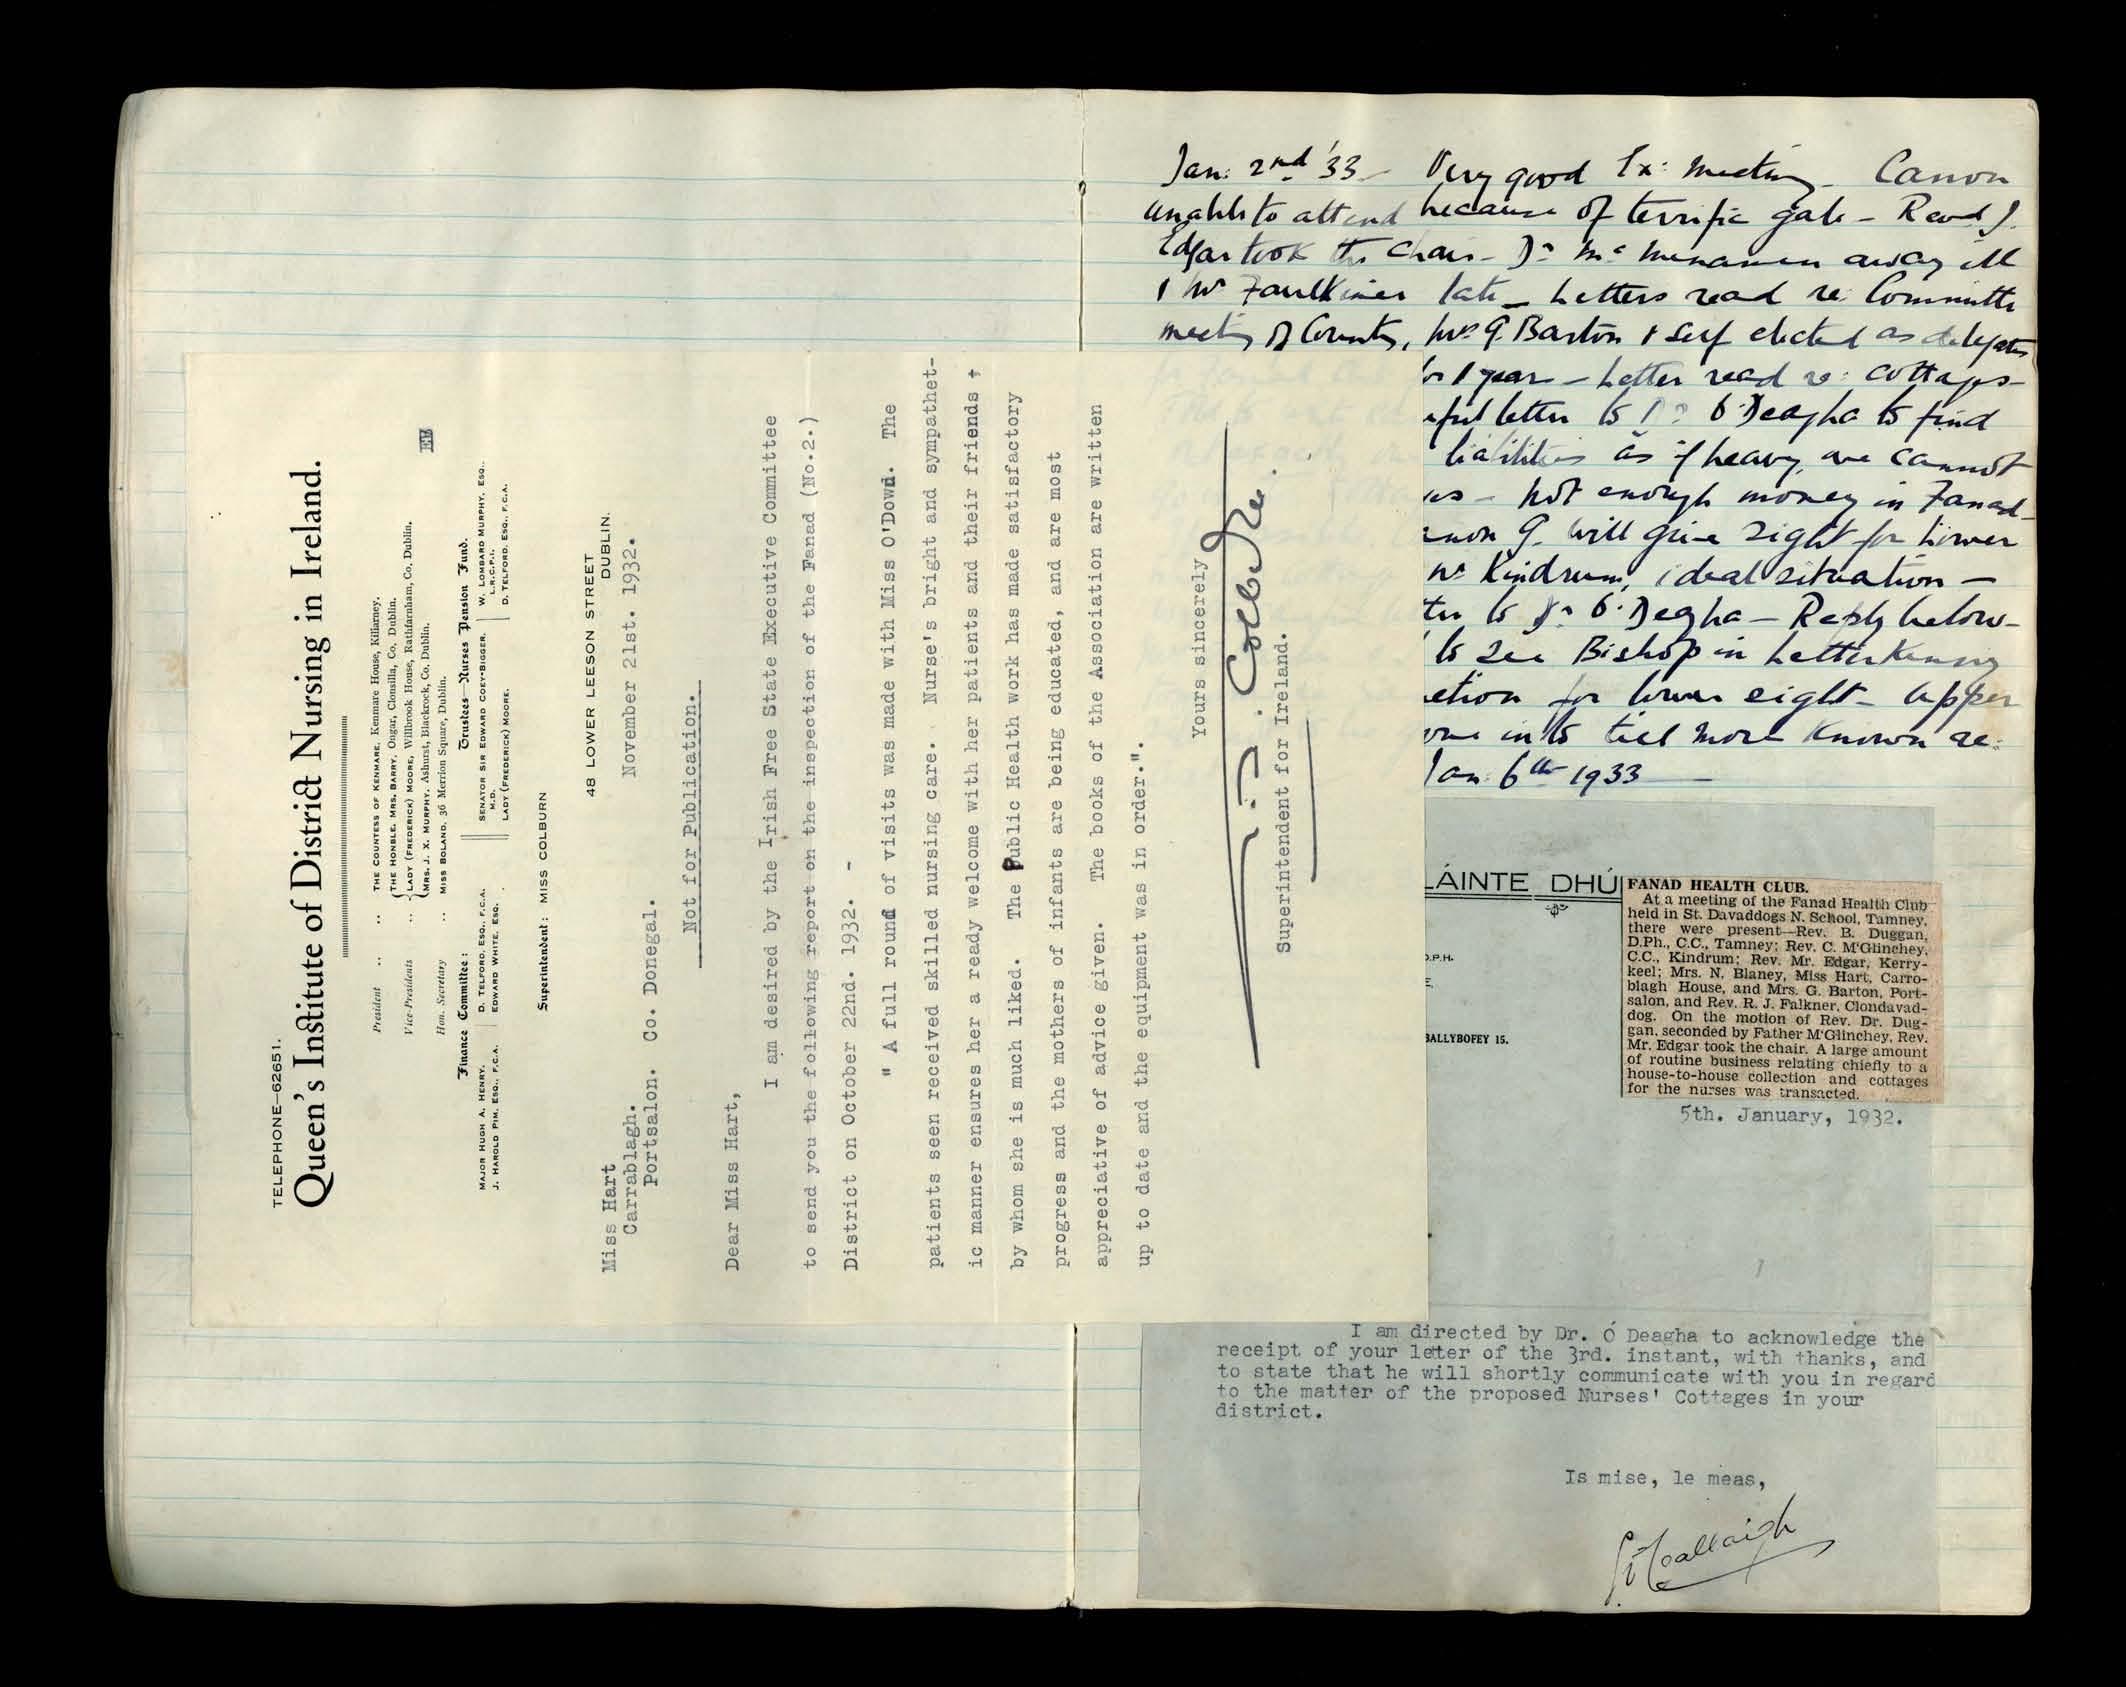 TELEPHONE—62651.
Queen's Institute of District Nursing in Ireland.
President .. .. THE COUNTESS OF KENMARE, Kenmare House, Killarney.
Vice-Presidents .. THE HONBLE. MRS. BARRY, Ongar, Clonsilla, Co. Dublin.
LADY (FREDERICK) MOORE, Willbrook House, Rathfarnham, Co. Dublin.
MRS. J. X. MURPHY, Ashurst, Blackrock, Co. Dublin.
Hon. Secretary .. MISS BOLAND, 36 Merrion Square, Dublin.
Finance Committee:
MAJOR HUGH A. HENRY.
J. HAROLD PIM, ESQ., F.C.A.
D. TELFORD, ESQ., F.C.A.
EDWARD WHITE, ESQ.
Trustees—Nurses Pension Fund.
SENATOR SIR EDWARD COEY-BIGGER, M.D.
LADY (FREDERICK) MOORE.
W. LOMBARD MURPHY, ESQ., L.R.C.P.I.
D. TELFORD, ESQ., F.C.A.
Superintendent: MISS COLBURN
48 LOWER LEESON STREET
DUBLIN.
November 21st. 1932.
Miss Hart
Carrablagh.
Portsalon. Co. Donegal.
Not for Publication.
Dear Miss Hart,
I am desired by the Irish Free State Executive Committee
to send you the following report on the inspection of the Fanad (No.2.)
District on October 22nd. 1932. -
" A full round of visits was made with Miss O'Dowd. The
patients seen received skilled nursing care. Nurse's bright and sympathet-
ic manner ensures her a ready welcome with her patients and their friends
by whom she is much liked. The Public Health work has made satisfactory
progress and the mothers of infants are being educated, and are most
appreciative of advice given. The books of the Association are written
up to date and the equipment was in order.".
Yours sincerely
Superintendent for Ireland.
Jan: 2nd '33 - Very good Ex: Meeting - Canon
unable to attend because of terrific gale - Revd J.
Edgar took the Chair - Dr McMenamin away ill
& Mr Faulkiner late - Letters read re: Committe
meeting of County, Mrs G. Barton & self elected as delegates
for 1 year - Letter read re: Cottages -
letter to Dr O'Deagha to find
liabilities as if heavy, we cannot
- Not enough money in Fanad -
G. will give sight for lower
nr Kindrum, ideal situation -
to Dr O'Deagha - Reply below -
to see Bishop in Letterkenny
for lower sight - Upper
into till more known re:
Jan: 6th 1933
LÁINTE DHÚ
D.P.H.
E.
BALLYBOFEY 15.
FANAD HEALTH CLUB.
At a meeting of the Fanad Health Club
held in St. Davaddogs N. School, Tamney,
there were present—Rev. B. Duggan,
D.Ph., C.C., Tamney; Rev. C. M'Glinchey,
C.C., Kindrum; Rev. Mr. Edgar, Kerry-
keel; Mrs. N. Blaney, Miss Hart, Carro-
blagh House, and Mrs. G. Barton, Port-
salon, and Rev. R. J. Falkner, Clondavad-
dog. On the motion of Rev. Dr. Dug-
gan, seconded by Father M'Glinchey, Rev.
Mr. Edgar took the chair. A large amount
of routine business relating chiefly to a
house-to-house collection and cottages
for the nurses was transacted.
5th. January, 1932.
I am directed by Dr. Ó Deagha to acknowledge the
receipt of your letter of the 3rd. instant, with thanks, and
to state that he will shortly communicate with you in regard
to the matter of the proposed Nurses' Cottages in your
district.
Is mise, le meas,